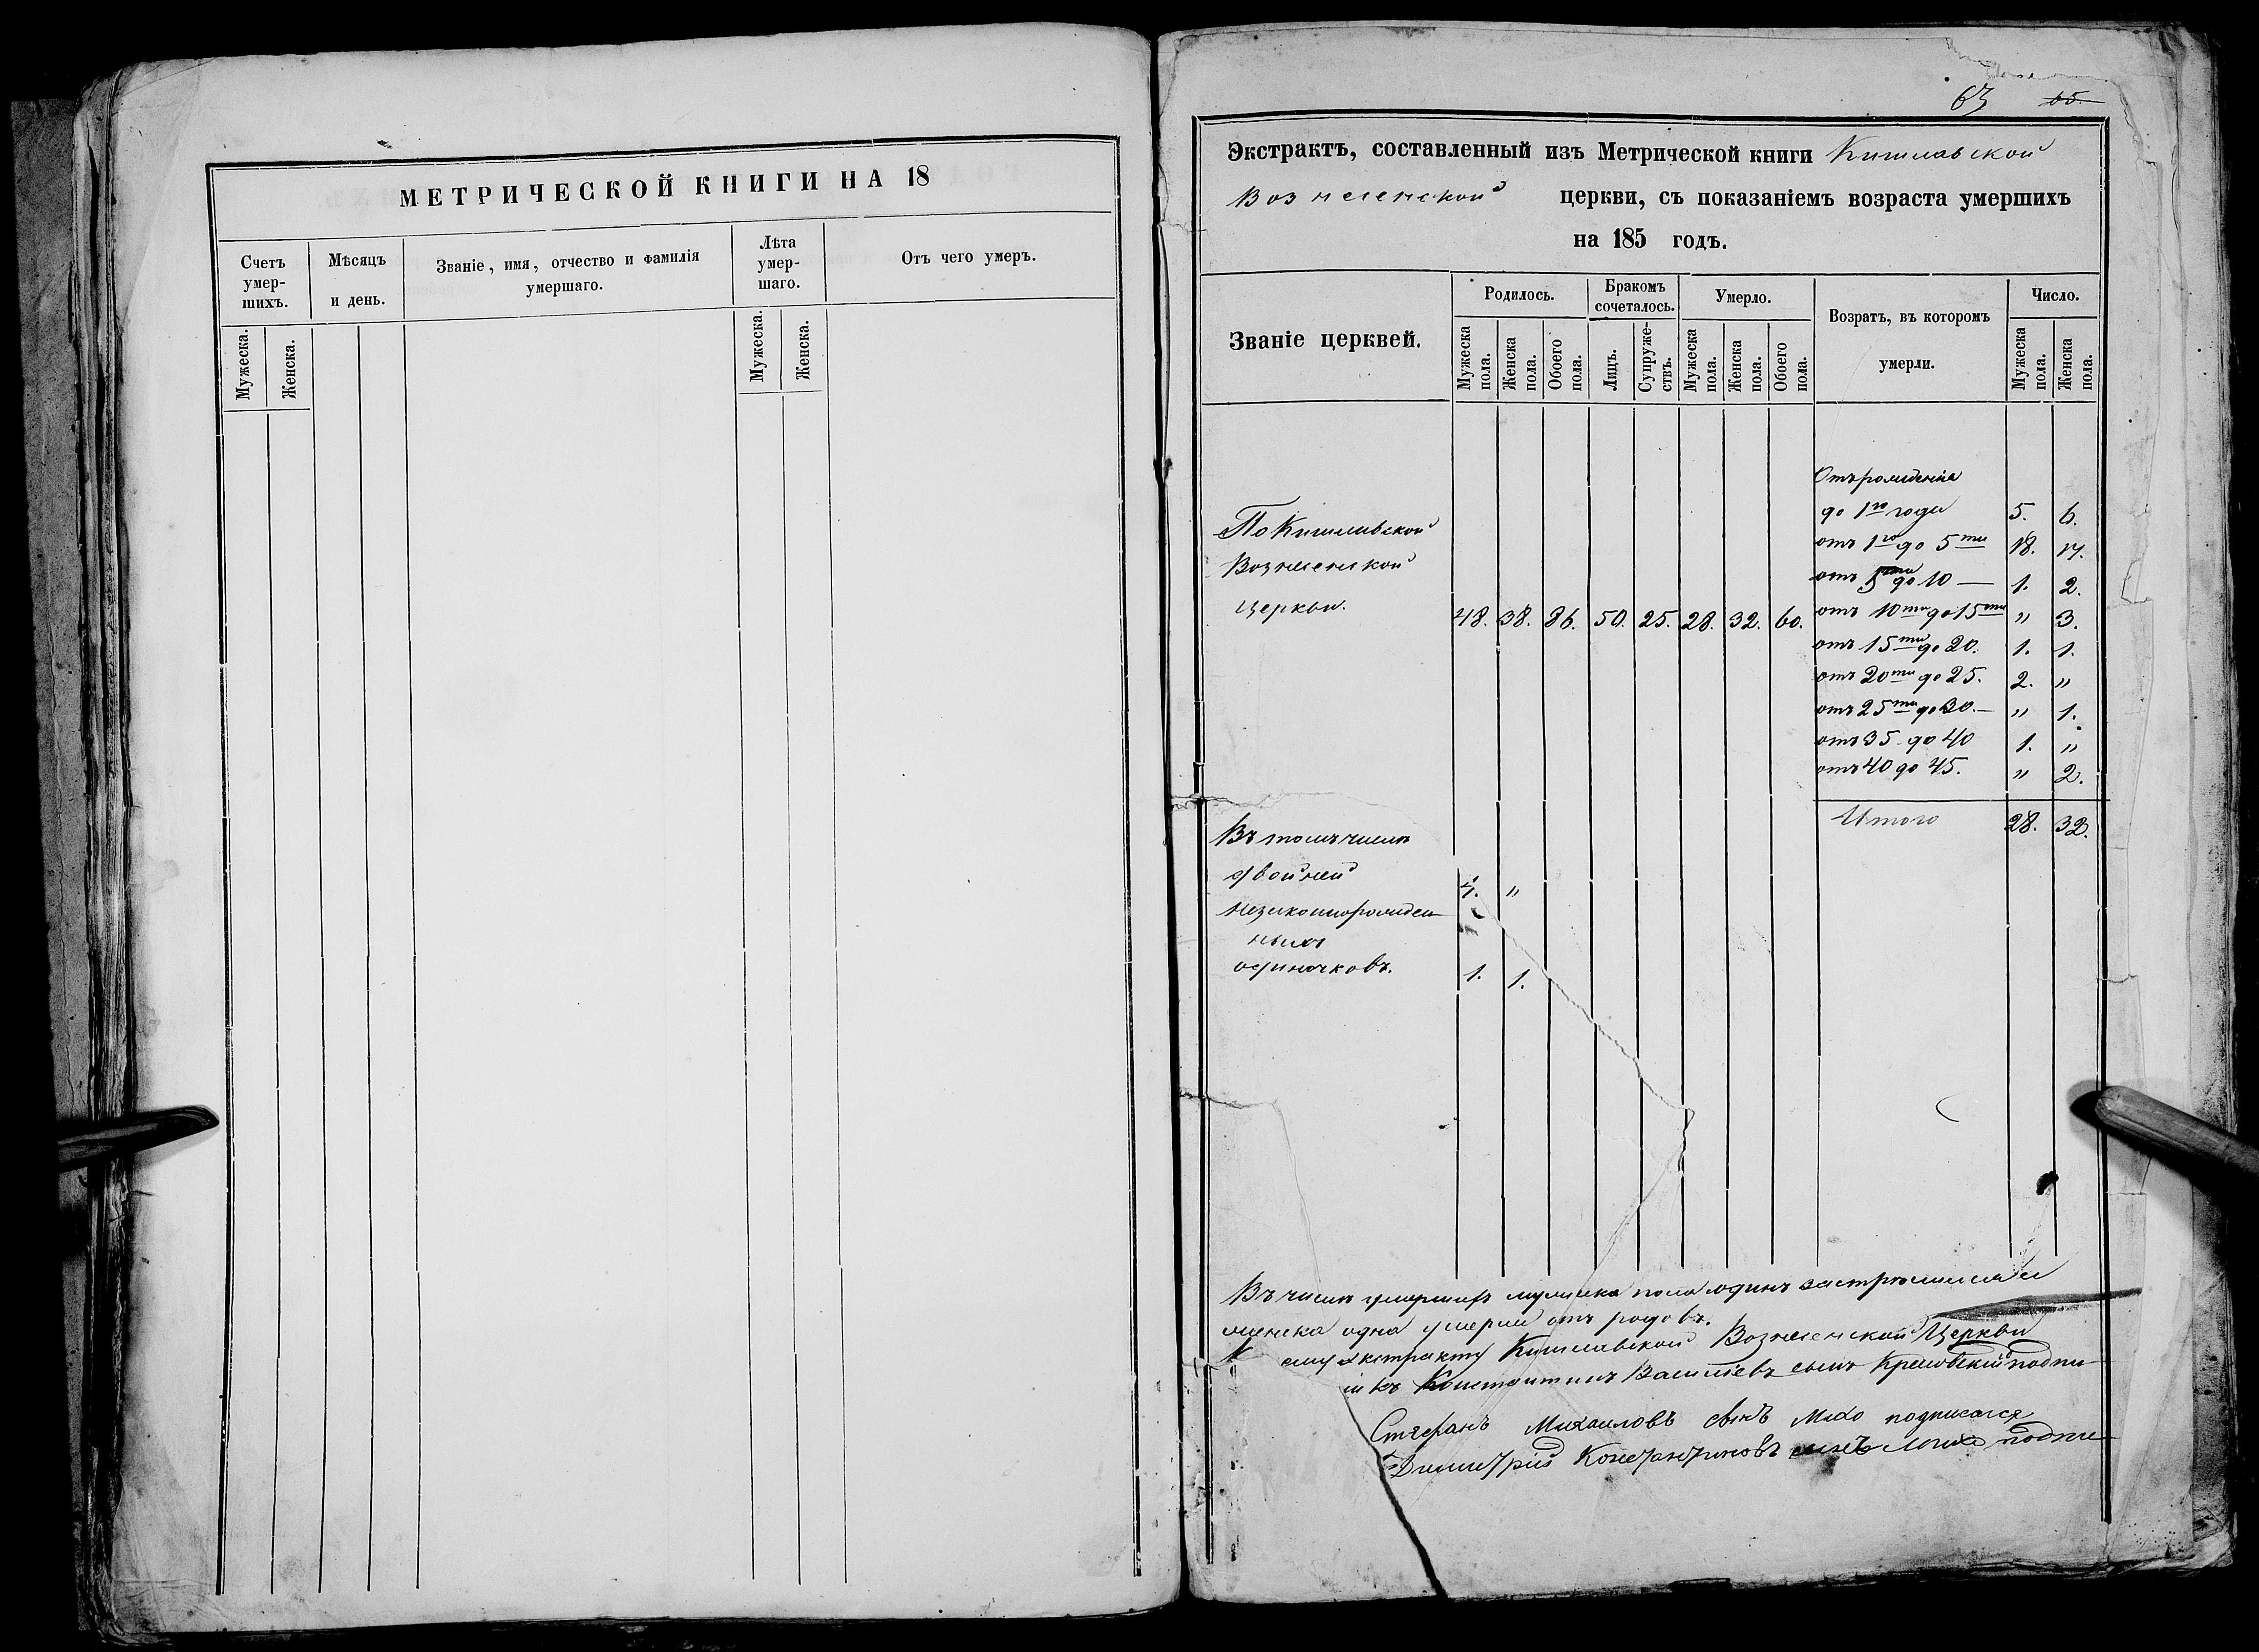 МЕТРИЧЕСКОЙ КНИГИ НА 18
Счетъ умер-шихъ.
Мѣсяцъ и день.
Званіе, имя, отчество и фамилія умершаго.
Лѣта умер-шаго.
Отъ чего умеръ.
Мужеска.
Женска.
Мужеска.
Женска.
63 65.
Экстрактъ, составленный изъ Метрической книги Кишлавской
Вознесенской церкви, съ показаніемъ возраста умершихъ
на 185 годъ.
Званіе церквей.
Родилось.
Бракомъ сочеталось.
Умерло.
Возратъ, въ которомъ умерли.
Число.
Мужеска пола.
Женска пола.
Обоего пола.
Лицъ.
Супруже-ствъ.
Мужеска пола.
Женска пола.
Обоего пола.
Мужеска пола.
Женска пола.
Отъ рожденія
до 1го года 5. 6.
отъ 1го до 5ти 18. 17.
отъ 5ти до 10 — 1. 2.
отъ 10ти до 15ти " 3.
отъ 15ти до 20. 1. 1.
отъ 20ти до 25. 2. "
отъ 25ти до 30. — " 1.
отъ 35 до 40 1. "
отъ 40 до 45. " 2.
Итого 28. 32.
По Кишлавской
Вознесенской
церкви. 48. 38. 86. 50. 25. 28. 32. 60.
Въ томъ числѣ
двойней 4. "
незаконнорожден
ныхъ
одиночковъ. 1. 1.
Въ числѣ умершихъ мужеска пола одинъ застрѣлился а
женска одна умерла отъ родовъ.
К сему экстракту Кишлавской Вознесенской Церкви
Константинъ Василіевъ сынъ подпи
Стефанъ Михаиловъ сынъ подписался
Димитрій Константиновъ сынъ подпи